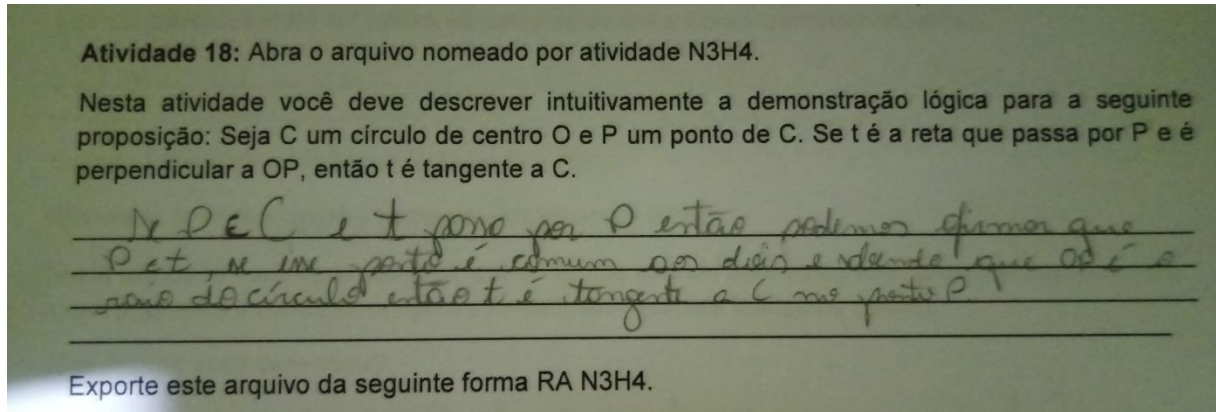 Atividade 18: Abra o arquivo nomeado por atividade N3H4.
Nesta atividade você deve descrever intuitivamente a demonstração lógica para a seguinte
proposição: Seja C um círculo de centro O e P um ponto de C. Se t é a reta que passa por P e é
perpendicular a OP, então t é tangente a C.
Se P ∈ C e t passa por P então podemos afirmar que
P ∈ t, se esse ponto é comum aos dois e sabendo que OP é o
raio do círculo então t é tangente a C no ponto P.
Exporte este arquivo da seguinte forma RA N3H4.